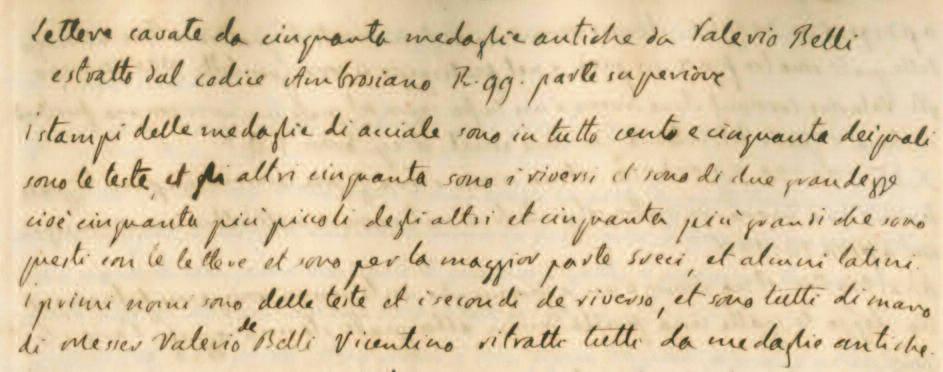 Lettere cavate da cinquanta medaglie antiche da Valerio Belli
estratto dal codice Ambrosiano R. 99. parte superiore
i stampi delle medaglie di acciale sono in tutto cento e cinquanta dei quali
sono le teste, et gli altri cinquanta sono i riversi et sono di due grandezze
cioè cinquanta più piccoli degli altri et cinquanta più grandi che sono
questi con le lettere et sono per la maggior parte Greci, et alcuni latini.
i primi nomi sono delle teste et i secondi de riverso, et sono tutti di mano
di Messer Valerio de Belli Vicentino ritratti tutti da medaglie antiche.